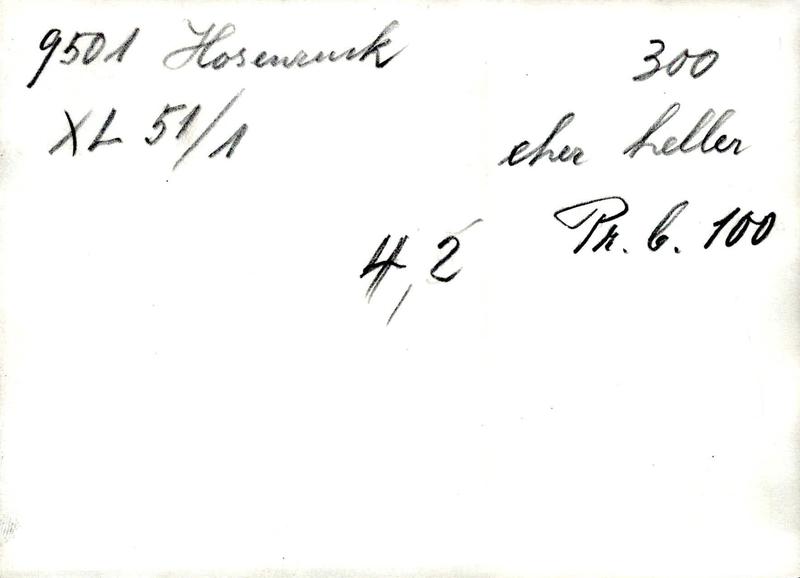 9501 Hosenruck
XL 51/1
300
eher heller
Pr. b. 100
4,2